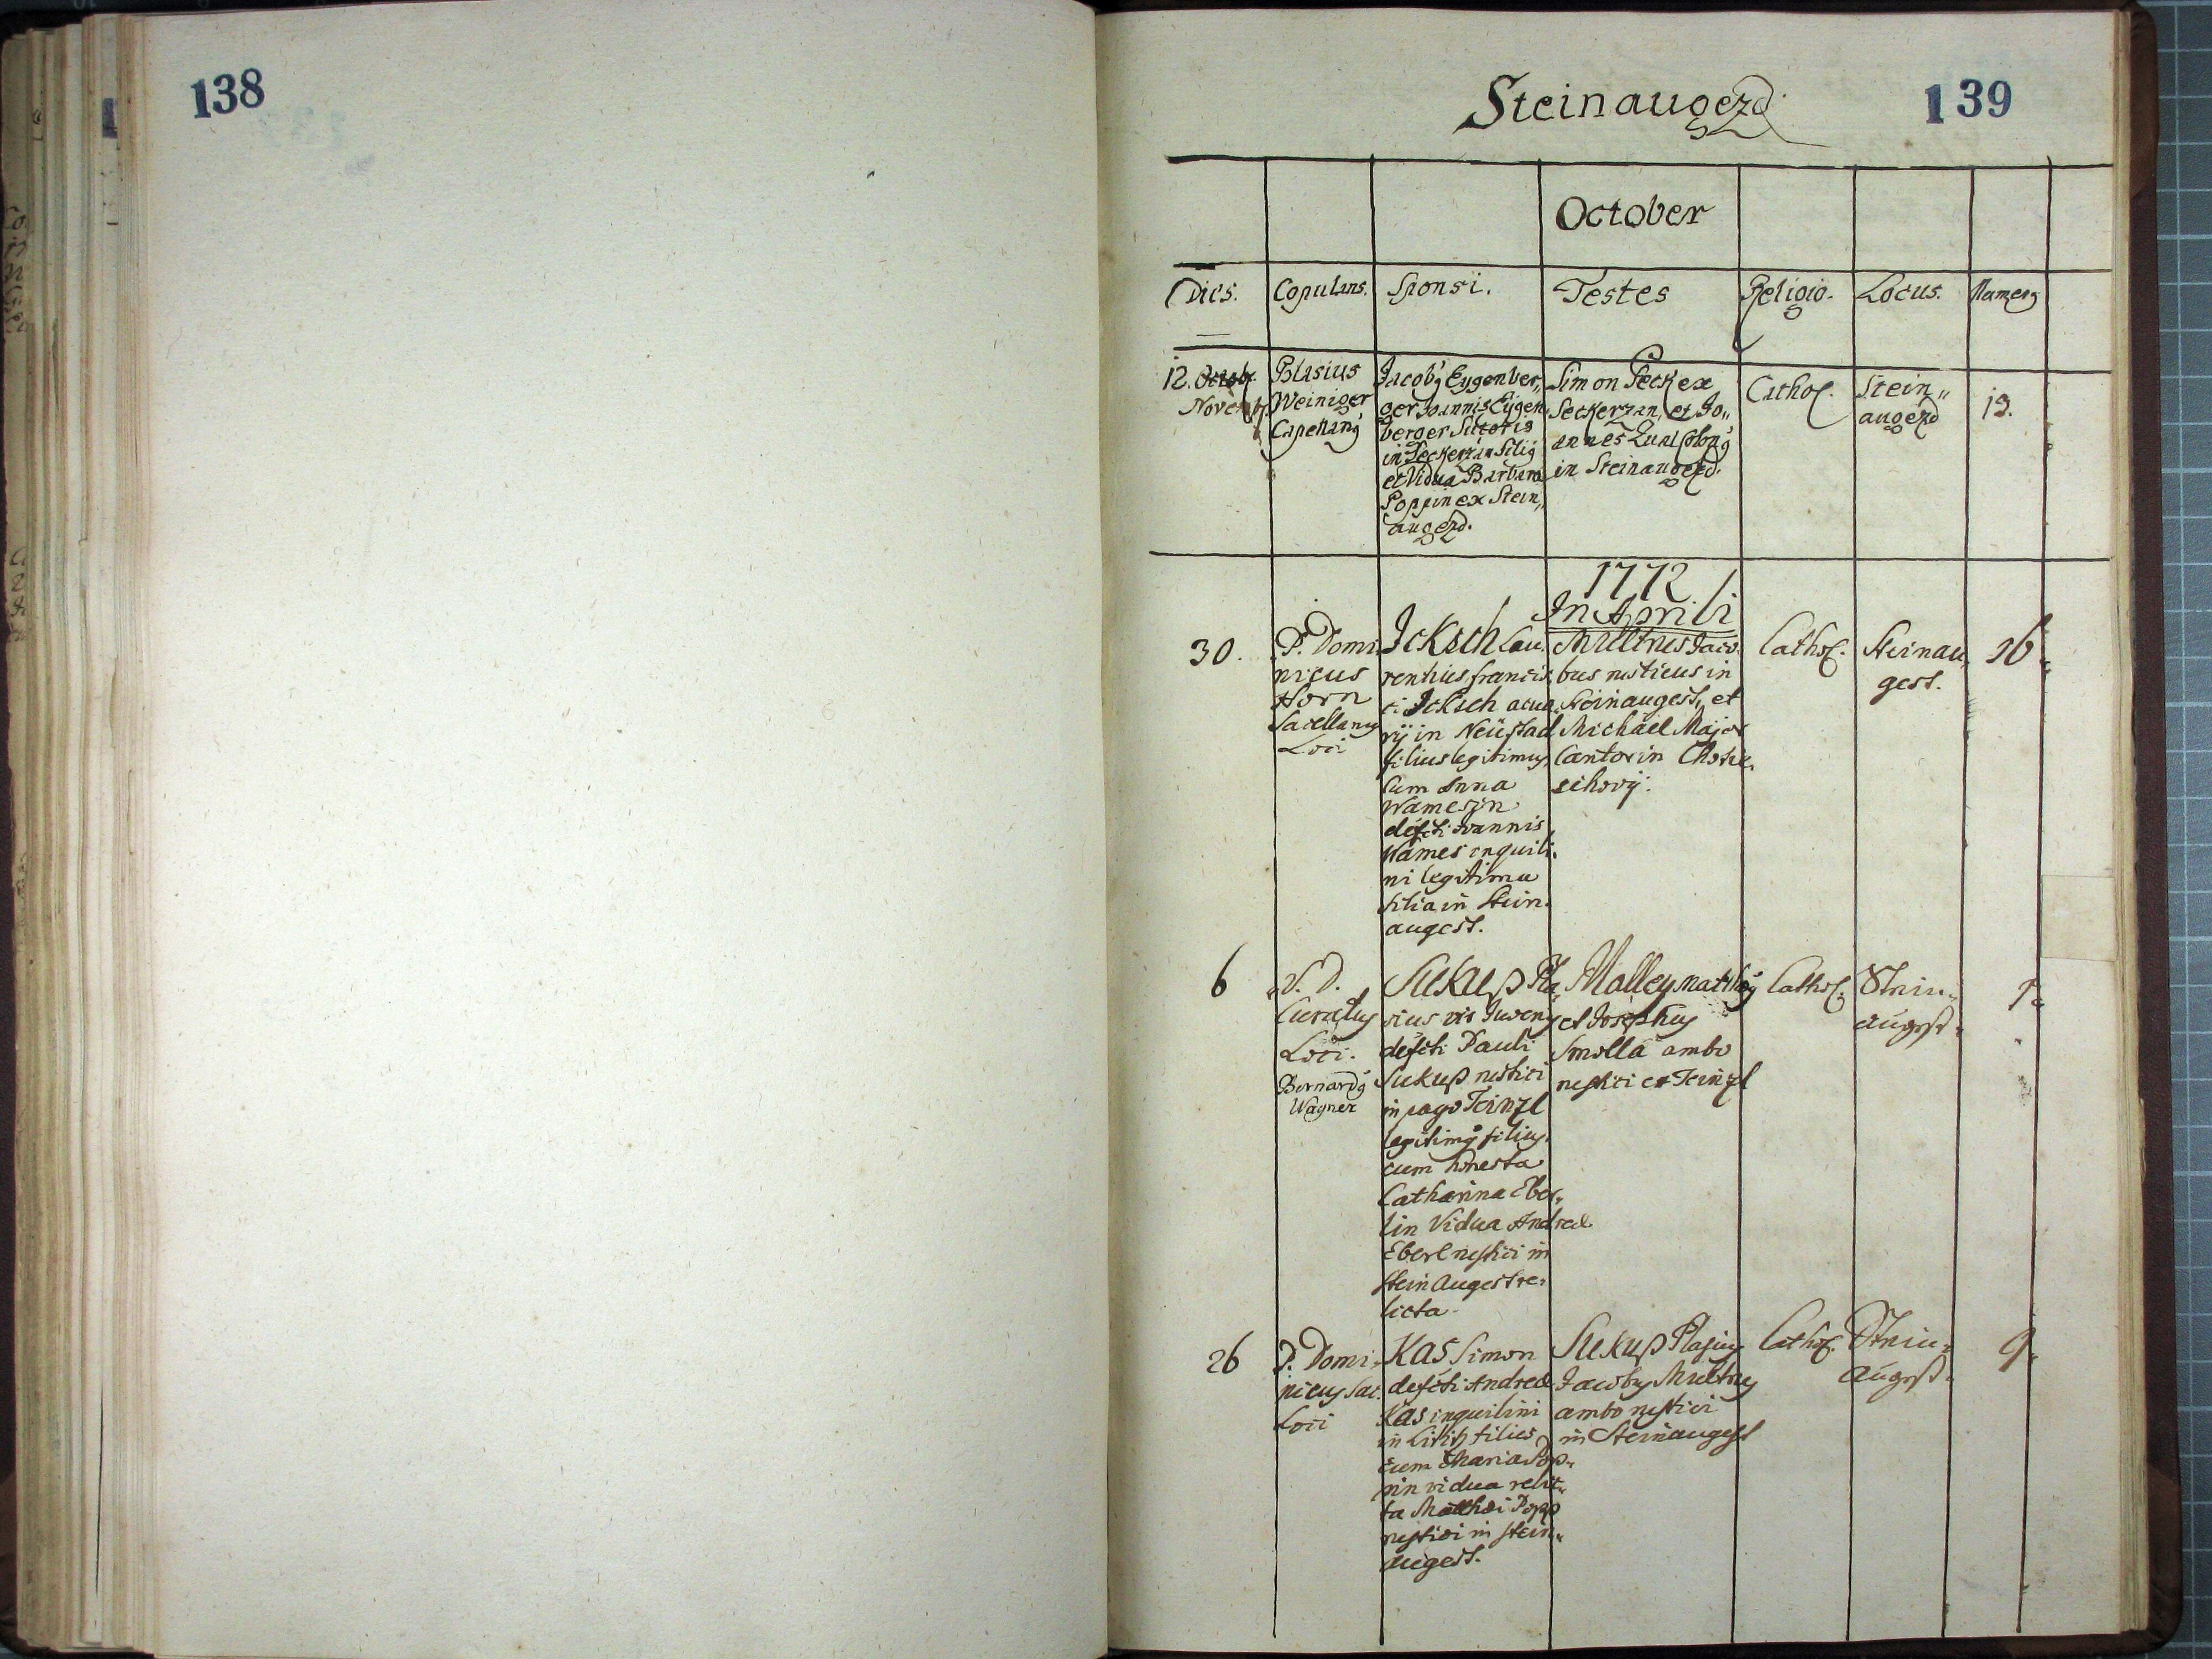 138
139
Steinaugezd
October
Dies. Copulans. Sponsi. Testes Religio. Locus. Numerg
12. Octob.
Novemb.
Blasius
Weiniger
Capellang
Jacobg Eygenber„
ger Joannis Eygen
berger Sutoris
in Seckerzan Filig
et Vidua Barbara
Poppin ex Stein„
augezd.
Simon Peck ex
Seckerzan, et Jo„
annes
in Steinaugezd.
Cathol.
Stein„
augezd
19.
1772
In Aprili
30.
P. Domi
nicus
Horn
Sacellanus
Loci
Icksch Lau
rentius francis
ci Icksch
in Neüstadl
filius legitimus,
cum Anna
Wamesin
defcti Joannis
Wames inquili
ni legitima
filia in Stein
augest.
Mulltnes Jaco
bus rusticus in
Steinaugest, et
Michael Major
Cantor in Chotie
schovij.
Cathol.
Steinau
gest.
16
6
V. D.
Curatus
Loci.
Bernardg
Wagner
Sukuß Pla
sius vir Juvenis
defcti Pauli
Sukuß rustici
in pago Teinzl
legitimg filius,
cum honesta
Catharina Eber
lin Vidua Andreae
Eberl rustici in
Stein Augest re
licta.
Malley Mathæg
et Josephus
Smolla ambo
rustici ex Teinzl
Cathol.
Stein
augest
26
P. Domi
nicus Sac.
Loci
Kas Simon
defcti Andreæ
Kas inquilini
in Lititz filius,
cum Maria Pop
pin vidua relic
ta Mathæi Popp
rustici in Stein
augest.
Sukuß Plasius
Jacobus Mulltnes
ambo rustici
in Steinaugest
Cathol.
Stein
augest